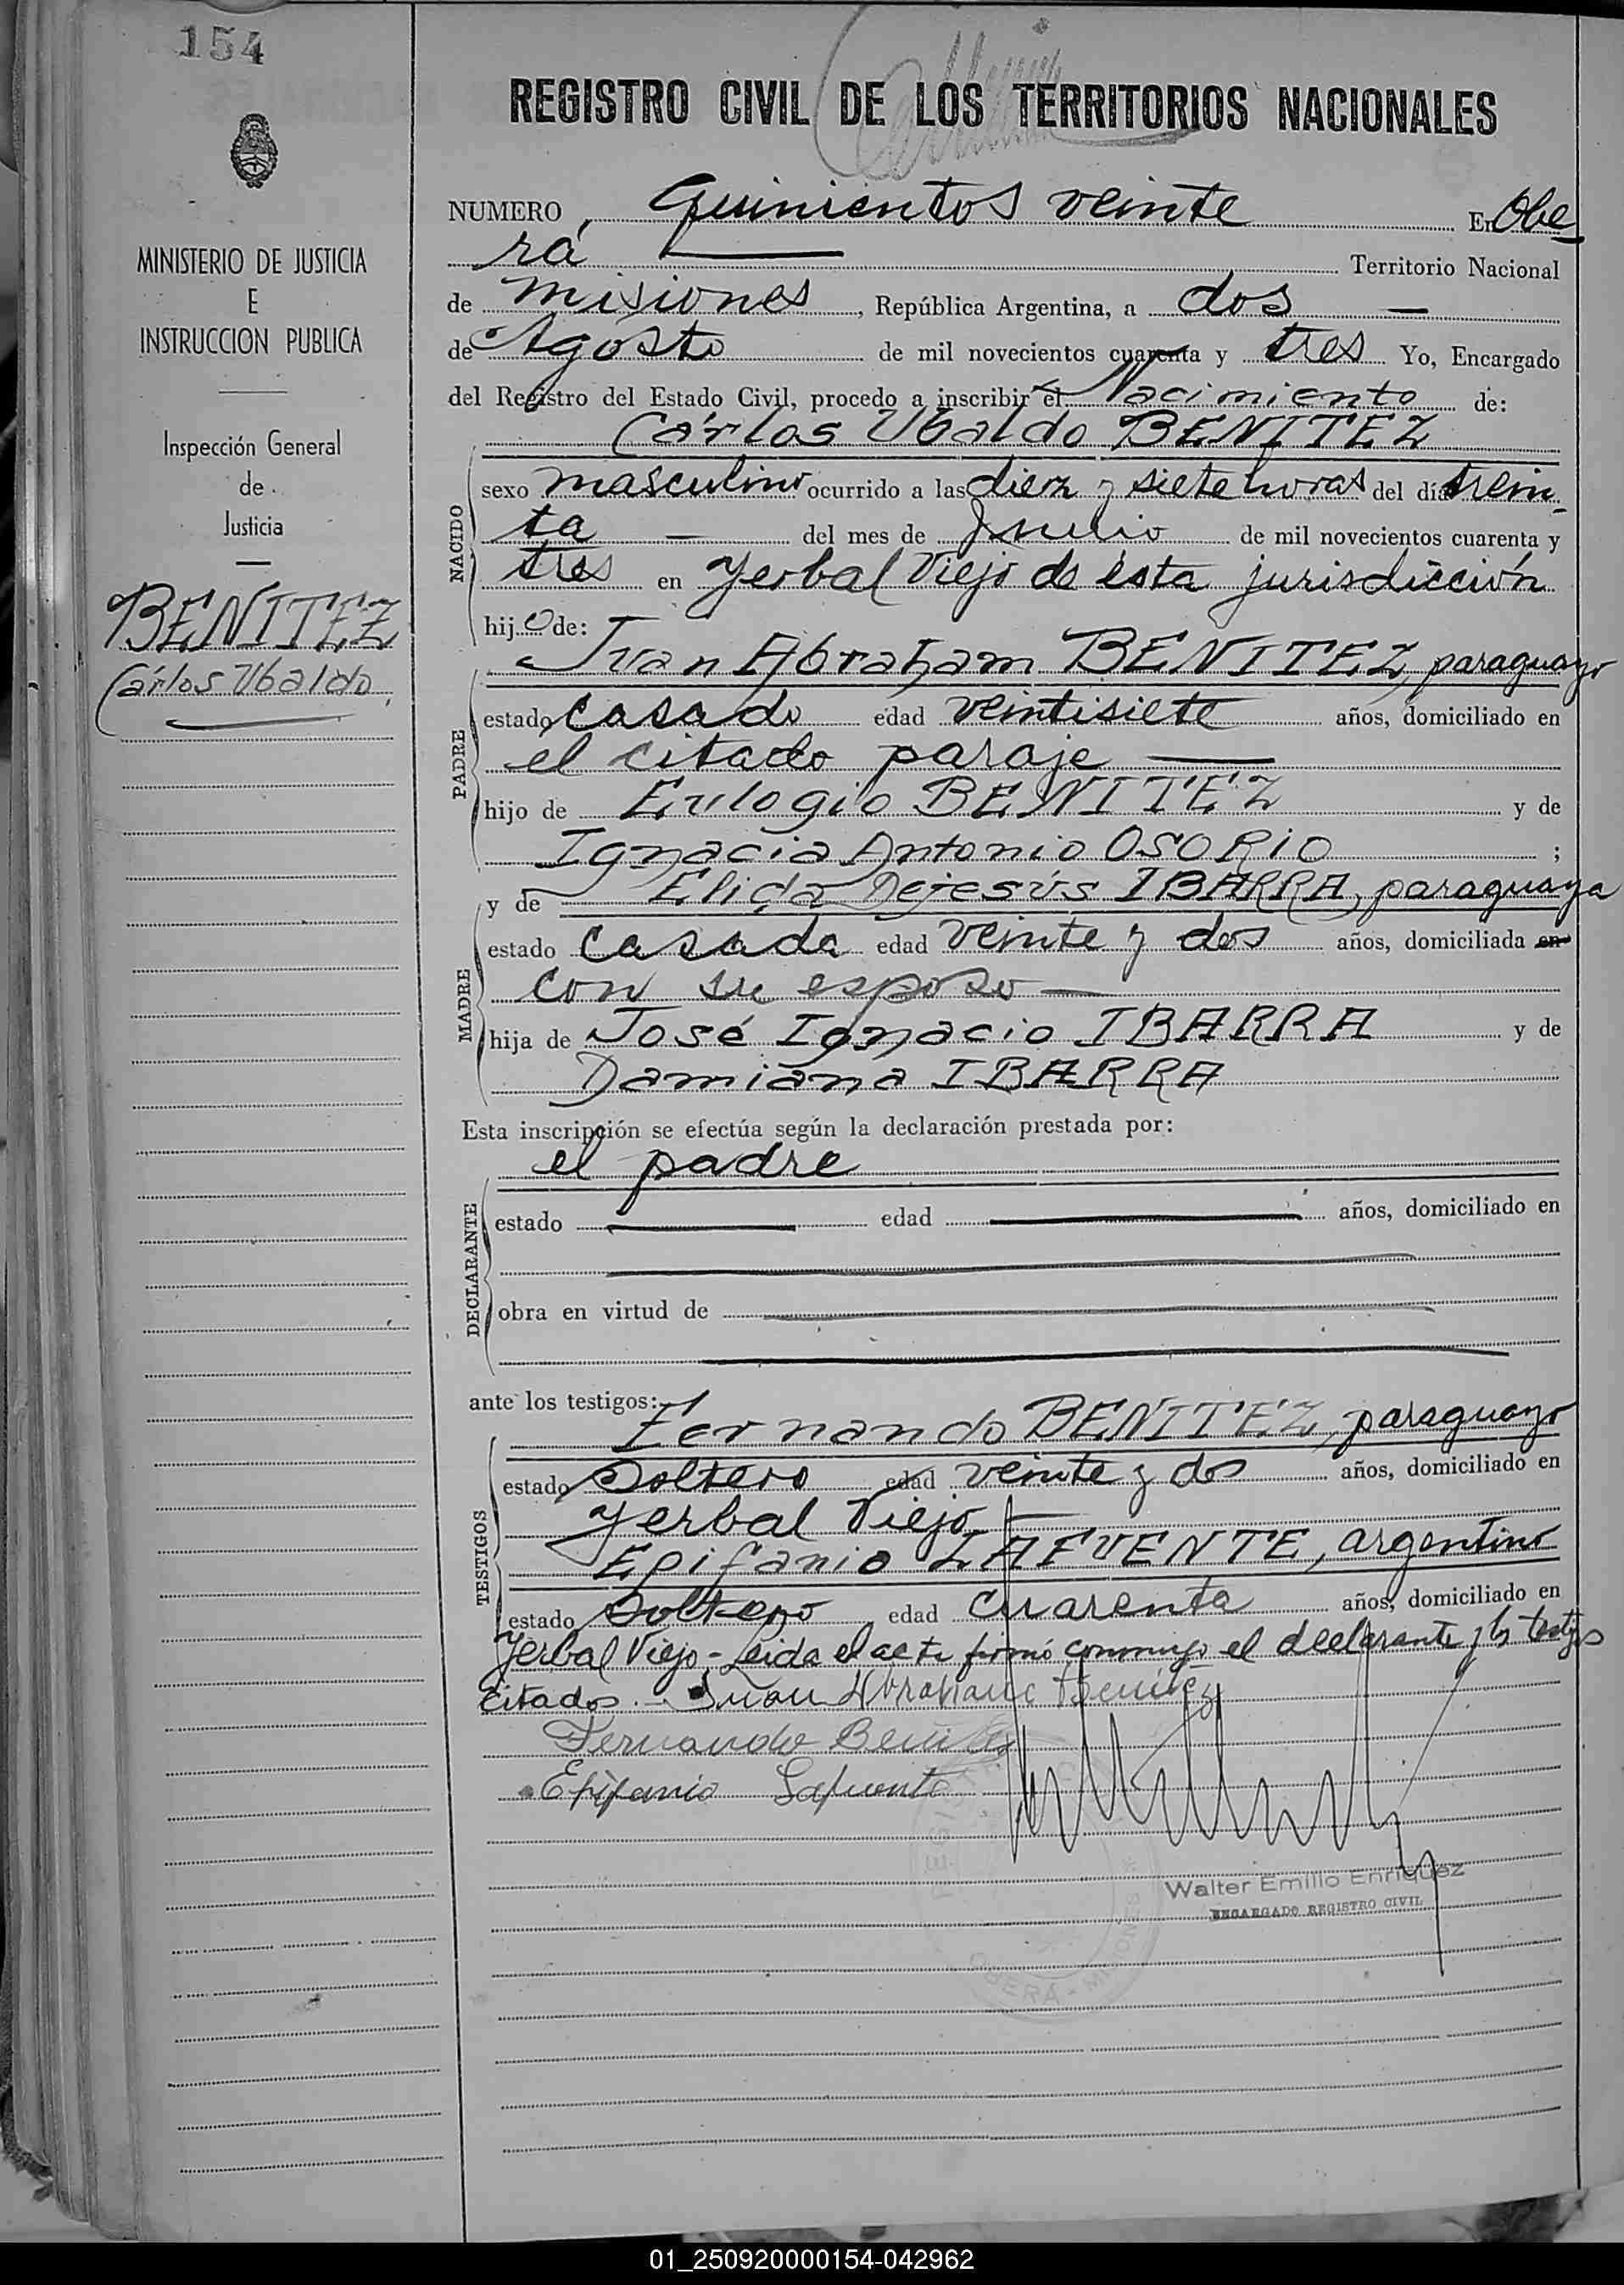 154
REGISTRO CIVIL DE LOS TERRITORIOS NACIONALES
MINISTERIO DE JUSTICIA
E
INSTRUCCION PUBLICA
Inspección General
de
Justicia
BENITEZ
Cárlos Ubaldo
NUMERO Quinientos veinte En Obe-
rá Territorio Nacional
de Misiones, República Argentina, a dos
de Agosto de mil novecientos cuarenta y tres Yo, Encargado
del Registro del Estado Civil, procedo a inscribir el Nacimiento de:
Cárlos Ubaldo BENITEZ
NACIDO
sexo masculino ocurrido a las diez y siete horas del día trein-
ta del mes de Julio de mil novecientos cuarenta y
tres en Yerbal Viejo de ésta jurisdicción
hijo de:
PADRE
Juan Abraham BENITEZ, paraguayo
estado casado edad veintisiete años, domiciliado en
el citado paraje
hijo de Eulogio BENITEZ y de
Ignacia Antonio OSORIO ;
MADRE
y de Elida Dejesús IBARRA, paraguaya
estado casada edad veinte y dos años, domiciliada en
con su esposo
hija de José Ignacio IBARRA y de
Damiana IBARRA
Esta inscripción se efectúa según la declaración prestada por:
el padre
DECLARANTE
estado edad años, domiciliado en
obra en virtud de
ante los testigos:
TESTIGOS
Fernando BENITEZ, paraguayo
estado Soltero edad veinte y dos años, domiciliado en
Yerbal Viejo
Epifanio LAFUENTE, argentino
estado Soltero edad cuarenta años, domiciliado en
Yerbal Viejo - Leida el acta firmó conmigo el declarante y los testigos
citados.- Juan Abraham Benitez
Fernando Benitez
Epifanio Lafuente
Walter Emilio Enriquez
ENCARGADO REGISTRO CIVIL
OBERÁ - MISIONES
01_250920000154-042962